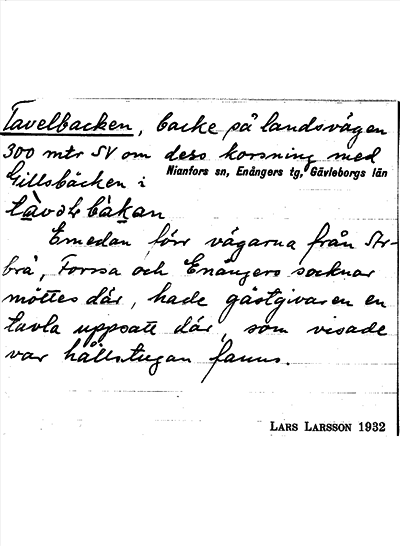 Tavelbacken, backe på landsvägen
300 mtr SV om dess korsning med
Nianfors sn, Enångers tg, Gävleborgs län
Gillsbäcken i
tàvəlbàkan
Emedan förr vägarna från Ar-
brå, Forssa och Enångers socknar
möttes där, hade gästgivaren en
tavla uppsatt där, som visade
var hållstugan fanns.
LARS LARSSON 1932